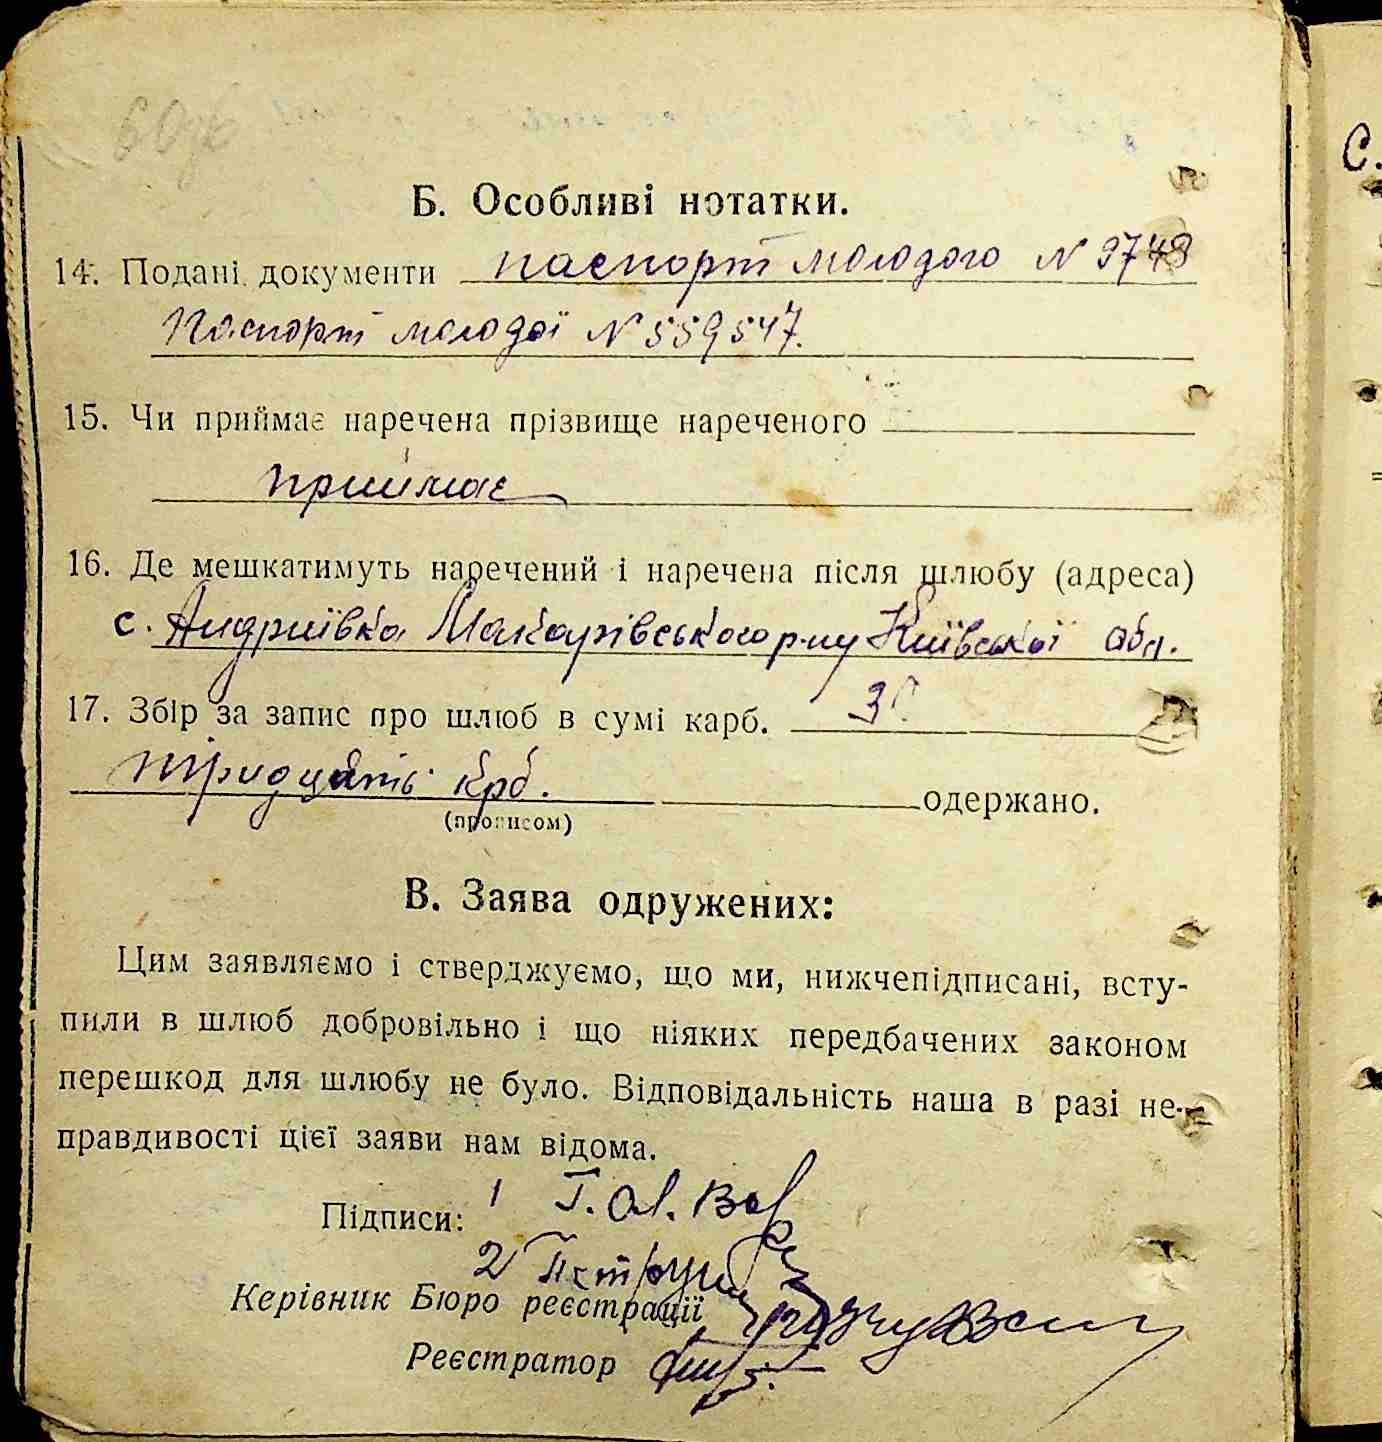 Б. Особливі нотатки.
14. Подані документи паспорт молодого N 9748
Паспорт молодої N 559547.
15. Чи приймає наречена прізвище нареченого
приймає
16. Де мешкатимуть наречений і наречена після шлюбу (адреса)
с. Андриївка Макарівського р-ну Київської обл.
17. Збір за запис про шлюб в сумі карб. 30.
тридцять крб. одержано.
(прописом)
В. Заява одружених:
Цим заявляємо і стверджуємо, що ми, нижчепідписані, всту-
пили в шлюб добровільно і що ніяких передбачених законом
перешкод для шлюбу не було. Відповідальність наша в разі не-
правдивості цієї заяви нам відома.
Підписи: 1
2
Керівник Бюро реєстрації
Реєстратор
с.